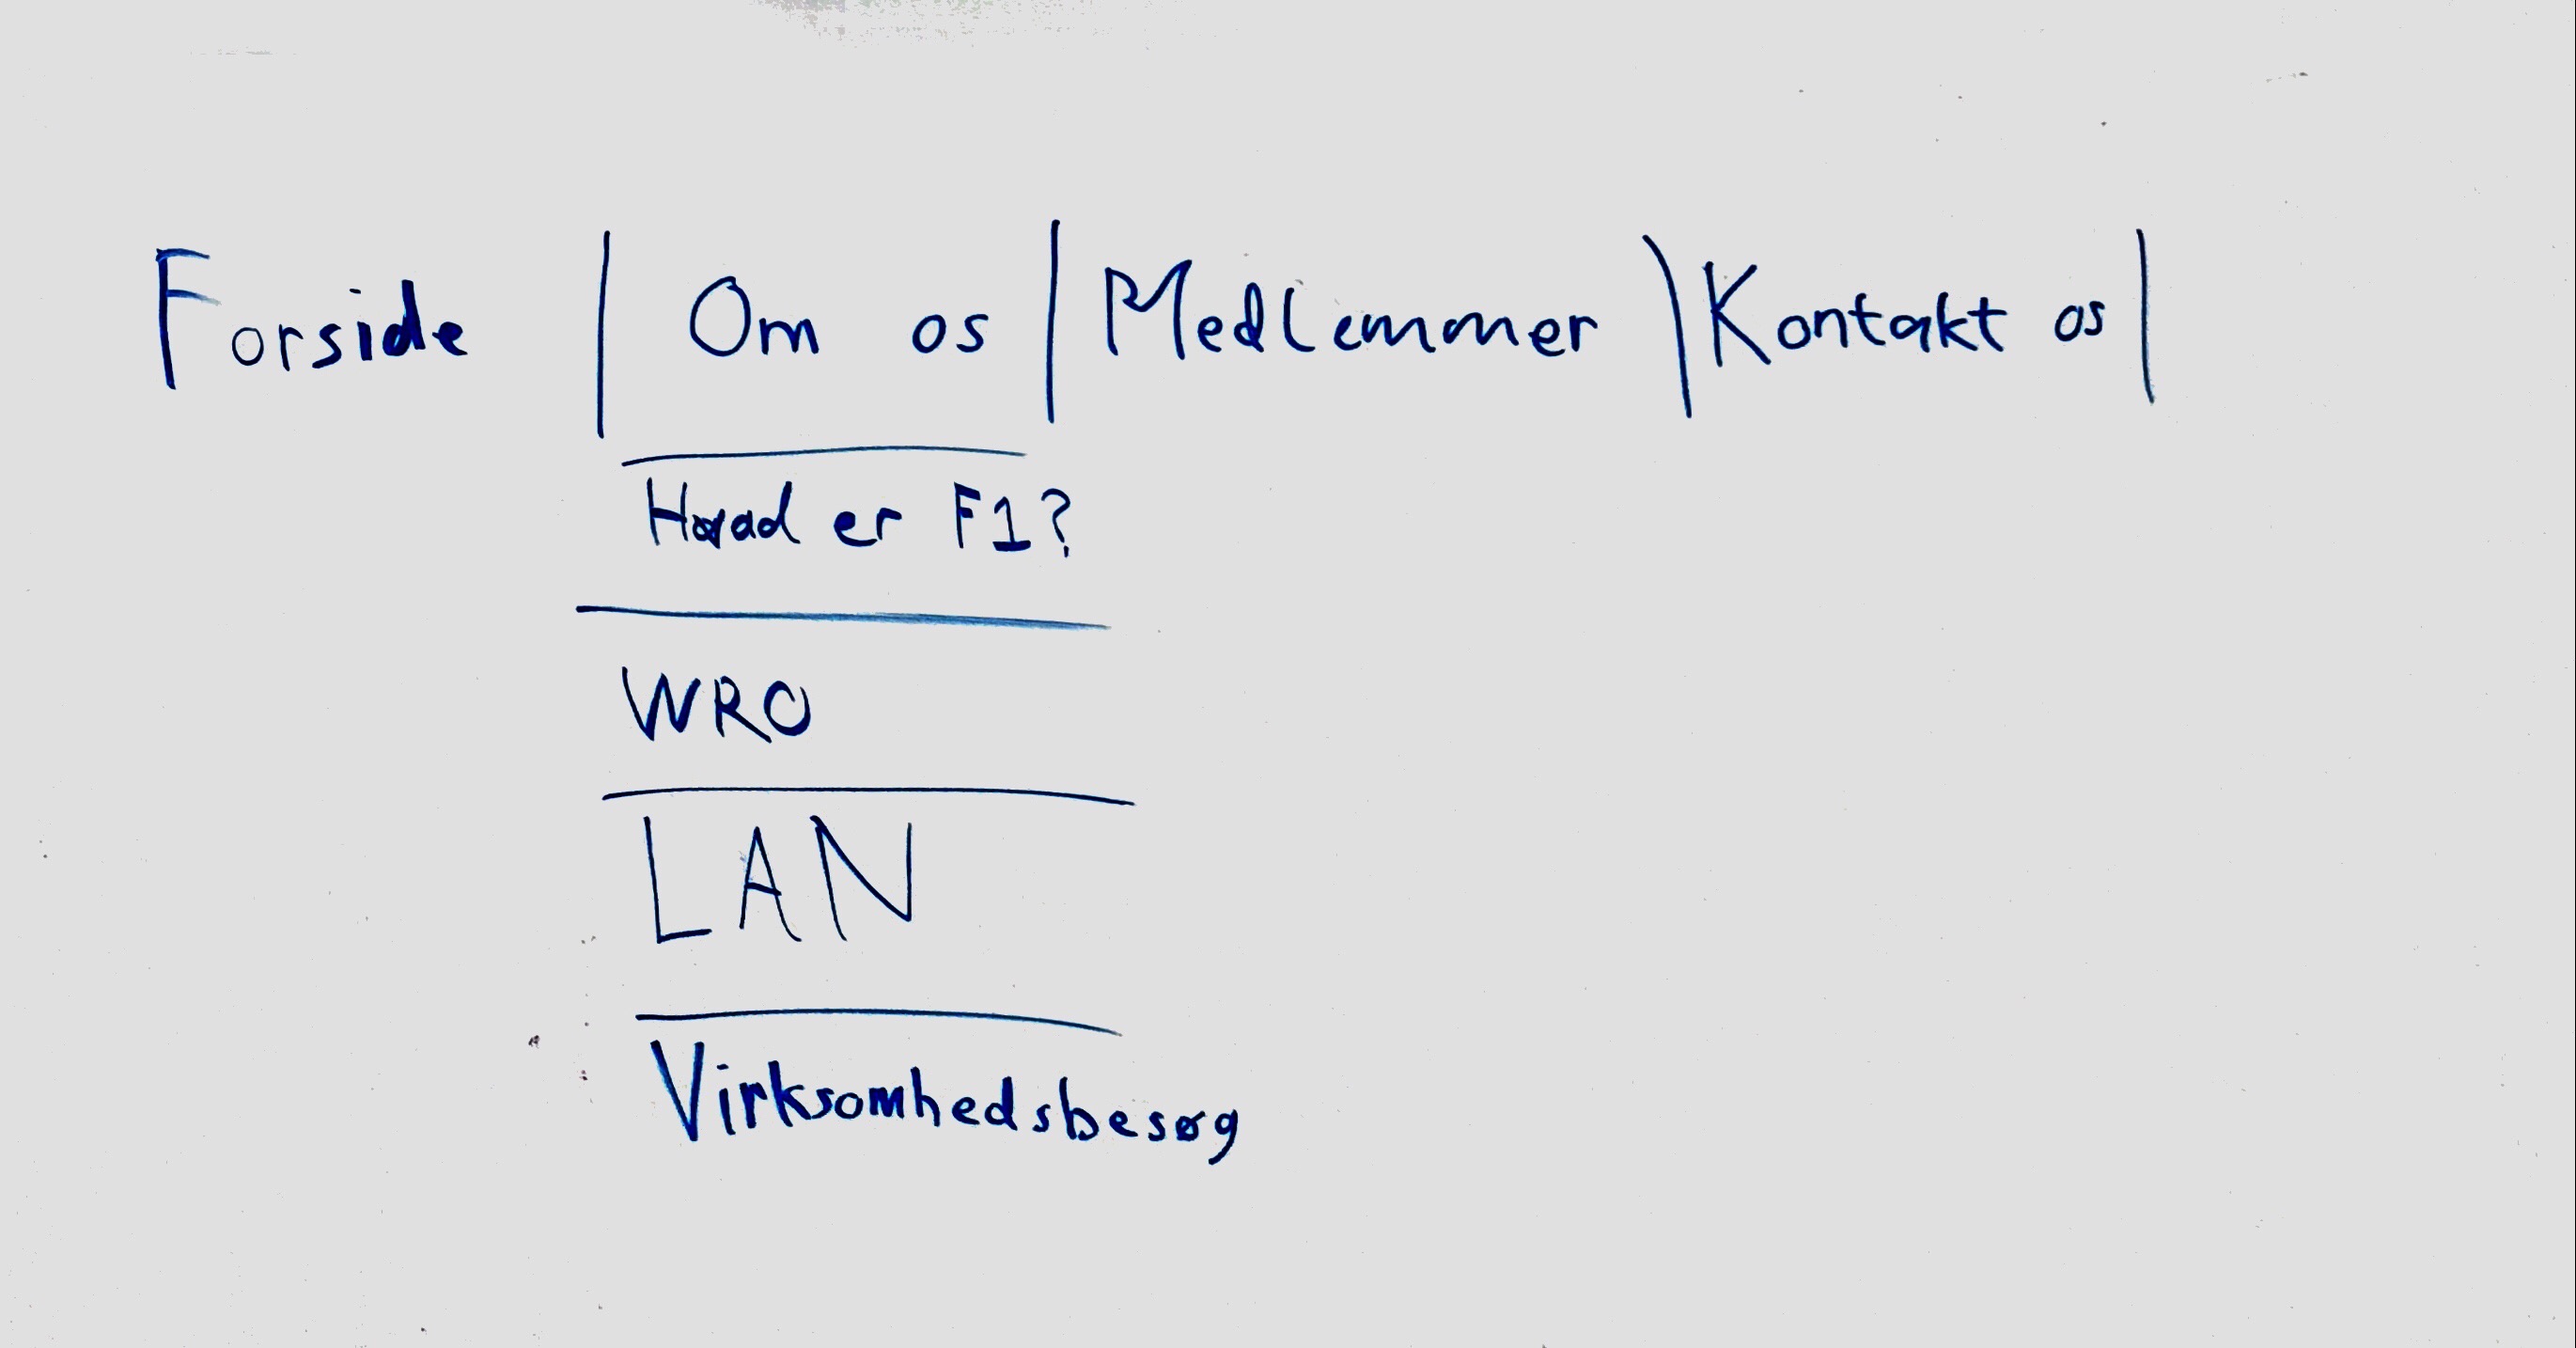 Forside | Om os | Medlemmer | Kontakt os |
Hvad er F1?
WRO
LAN
Virksomhedsbesøg